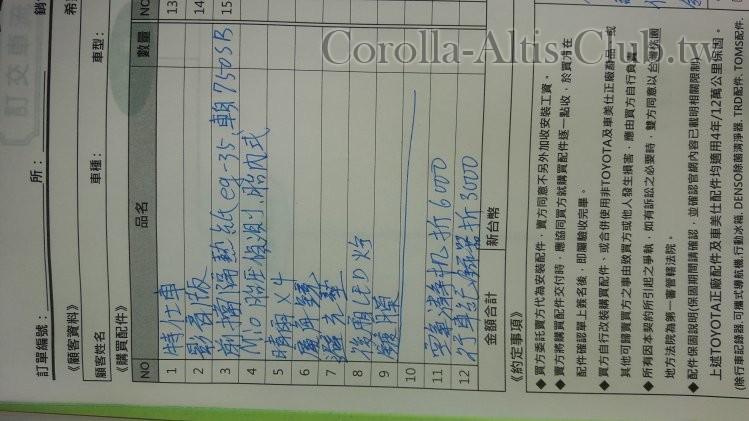 Corolla-Altis-Club.tw
訂交車流
銷
訂單編號： 所：
《顧客資料》 希
顧客姓名 車種： 車型：
《購買配件》
NO 品名 數量 NO
1 特仕車 13
2 影音版 14
3 前擋隔熱紙 eg-35, 車身 750SB 15
4 Mio胎壓偵測, 胎內式
5 晴雨 x 4
6
7 避光墊
8 後期LED燈
9
10
11 空氣清淨机 折 6000
12 行車記錄器 折 3000
金額合計 新台幣
《約定事項》
◆ 買方委託賣方代為安裝配件，賣方同意不另外加收安裝工資。
◆ 賣方將購買配件交付時，應協同買方就購買配件逐一點收，於買方在
配件確認單上簽名後，即屬驗收完畢。
◆ 買方自行改裝購買配件、或合併使用非TOYOTA及車美仕正廠商品，或
其他可歸責買方之事由致買方或他人發生損害，應由買方自行負責
◆ 所有因本契約所引起之爭執，如有訴訟之必要時，雙方同意以 台灣桃園
地方法院為第一審管轄法院。
◆ 配件保固說明(保固期間請確認，並確認官網內容已載明相關限制)
上述TOYOTA正廠配件及車美仕配件均適用4年/12萬公里保固。
(除行車記錄器.可攜式導航機.行動冰箱.DENSO除菌清淨器.TRD配件.TOMS配件.